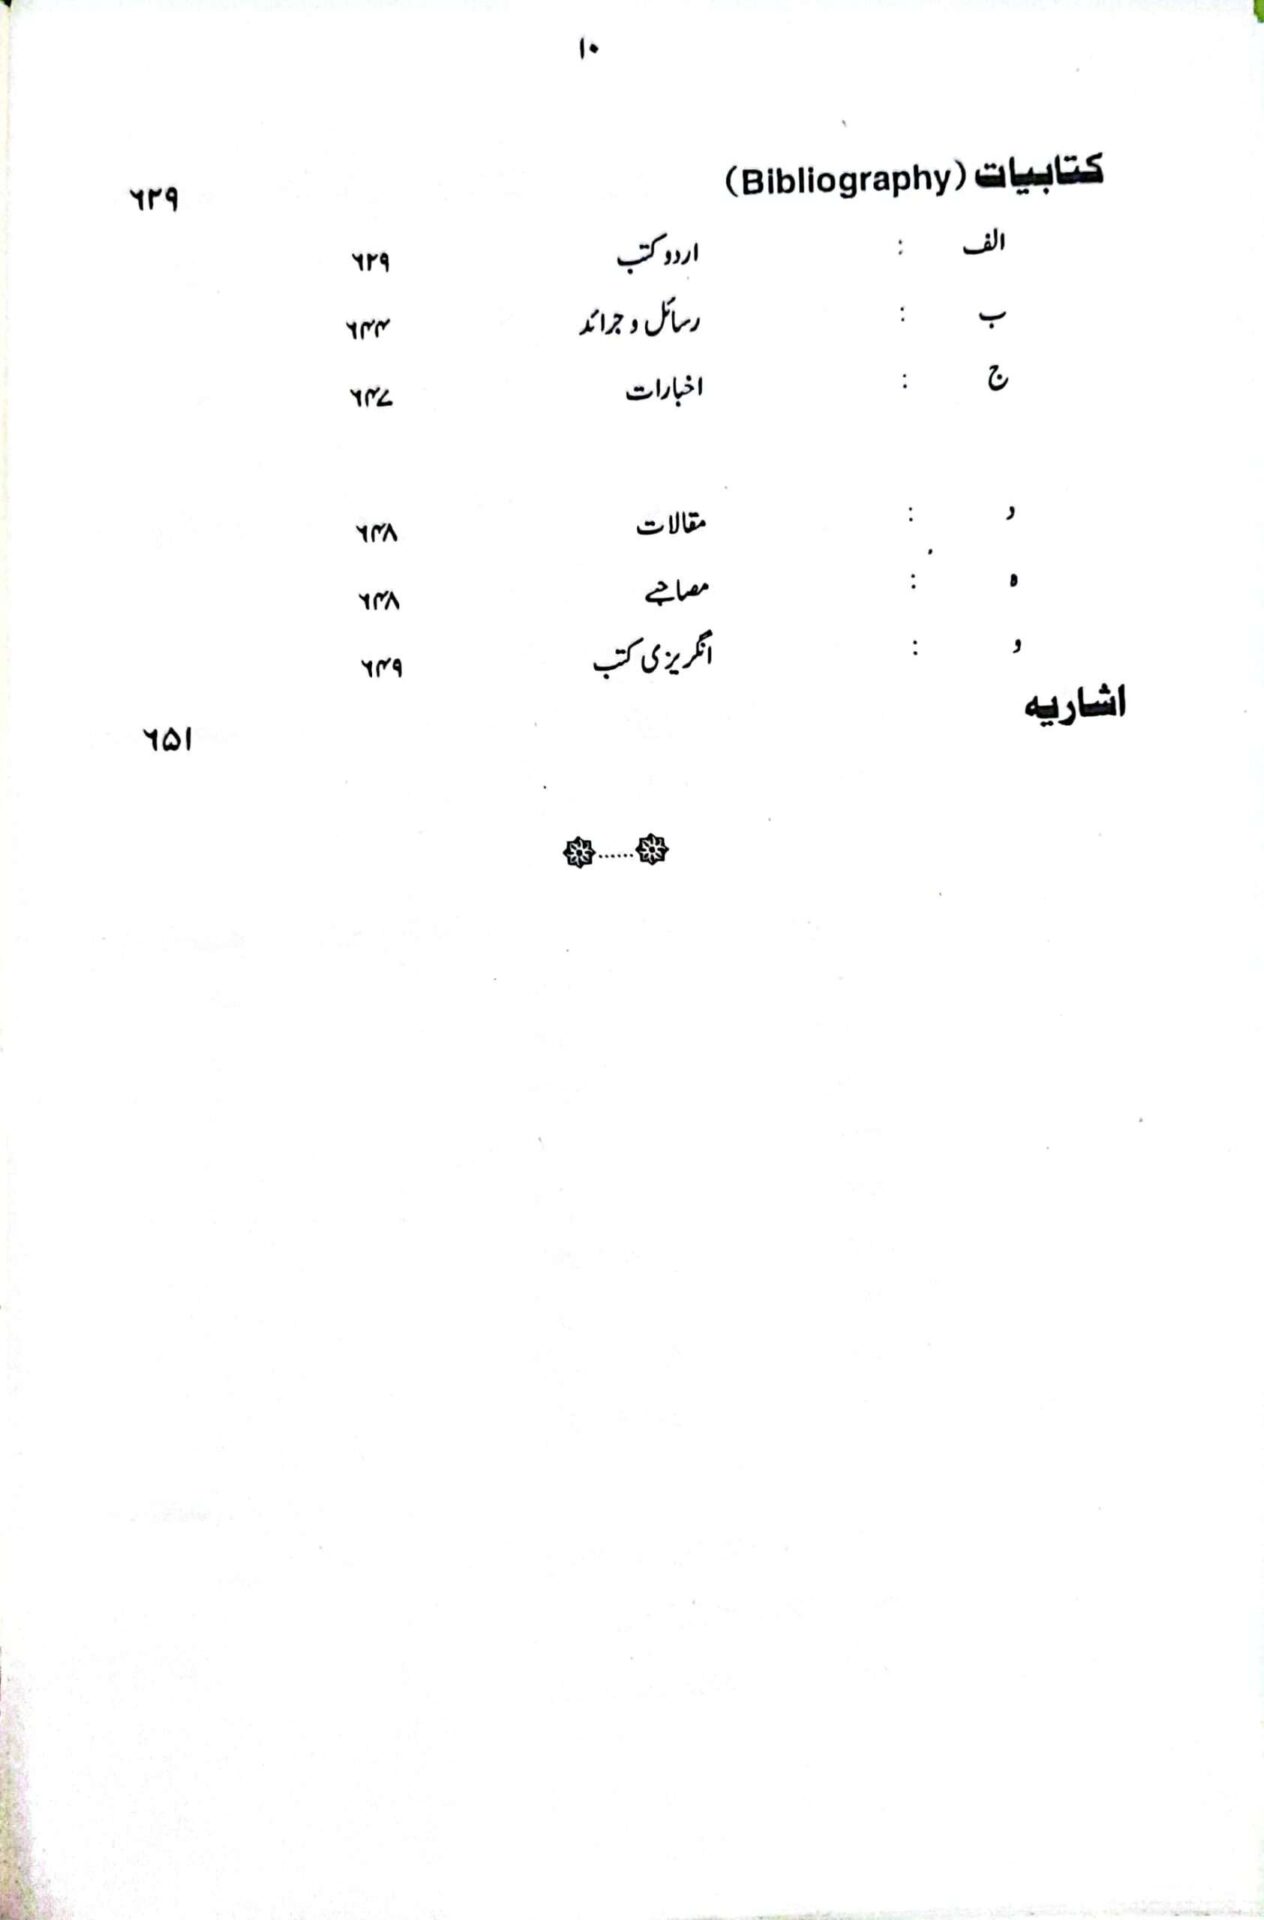 ۱۰
کتابیات (Bibliography) ۶۲۹
الف : اردو کتب ۶۲۹
ب : رسائل و جرائد ۶۴۴
ج : اخبارات ۶۴۷
د : مقالات ۶۴۸
ہ : مصاحبے ۶۴۸
و : انگریزی کتب ۶۴۹
اشاریہ ۶۵۱